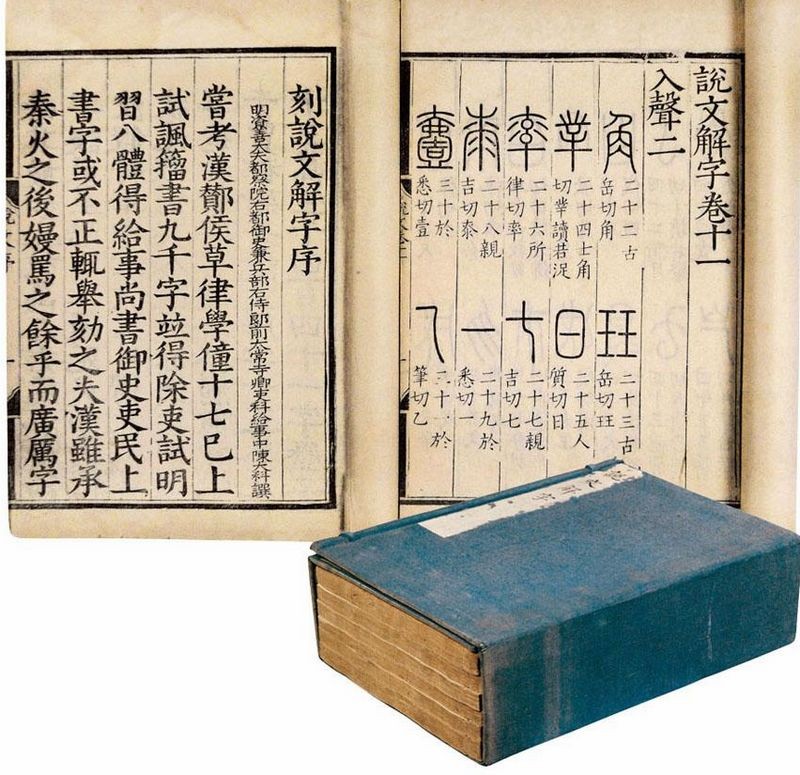 說文解字卷十一
入聲二
角 二十二古岳切角 玨 二十三古岳切玨
丵 二十四士角切丵讀若浞 日 二十五人質切日
率 二十六所律切率 七 二十七親吉切七
桼 二十八親吉切桼 一 二十九於悉切一
壹 三十於悉切壹 乙 三十一於筆切乙
刻說文解字序
明資善大夫都察院右都御史兼兵部右侍郎前太常寺卿吏科給事中陳大科譔
嘗考漢酇侯草律學僮十七已上
試諷籀書九千字並得除吏試明
習八體得給事尚書御史吏民上
書字或不正輒舉劾之夫漢雖承
秦火之後嫚罵之餘乎而廣厲字